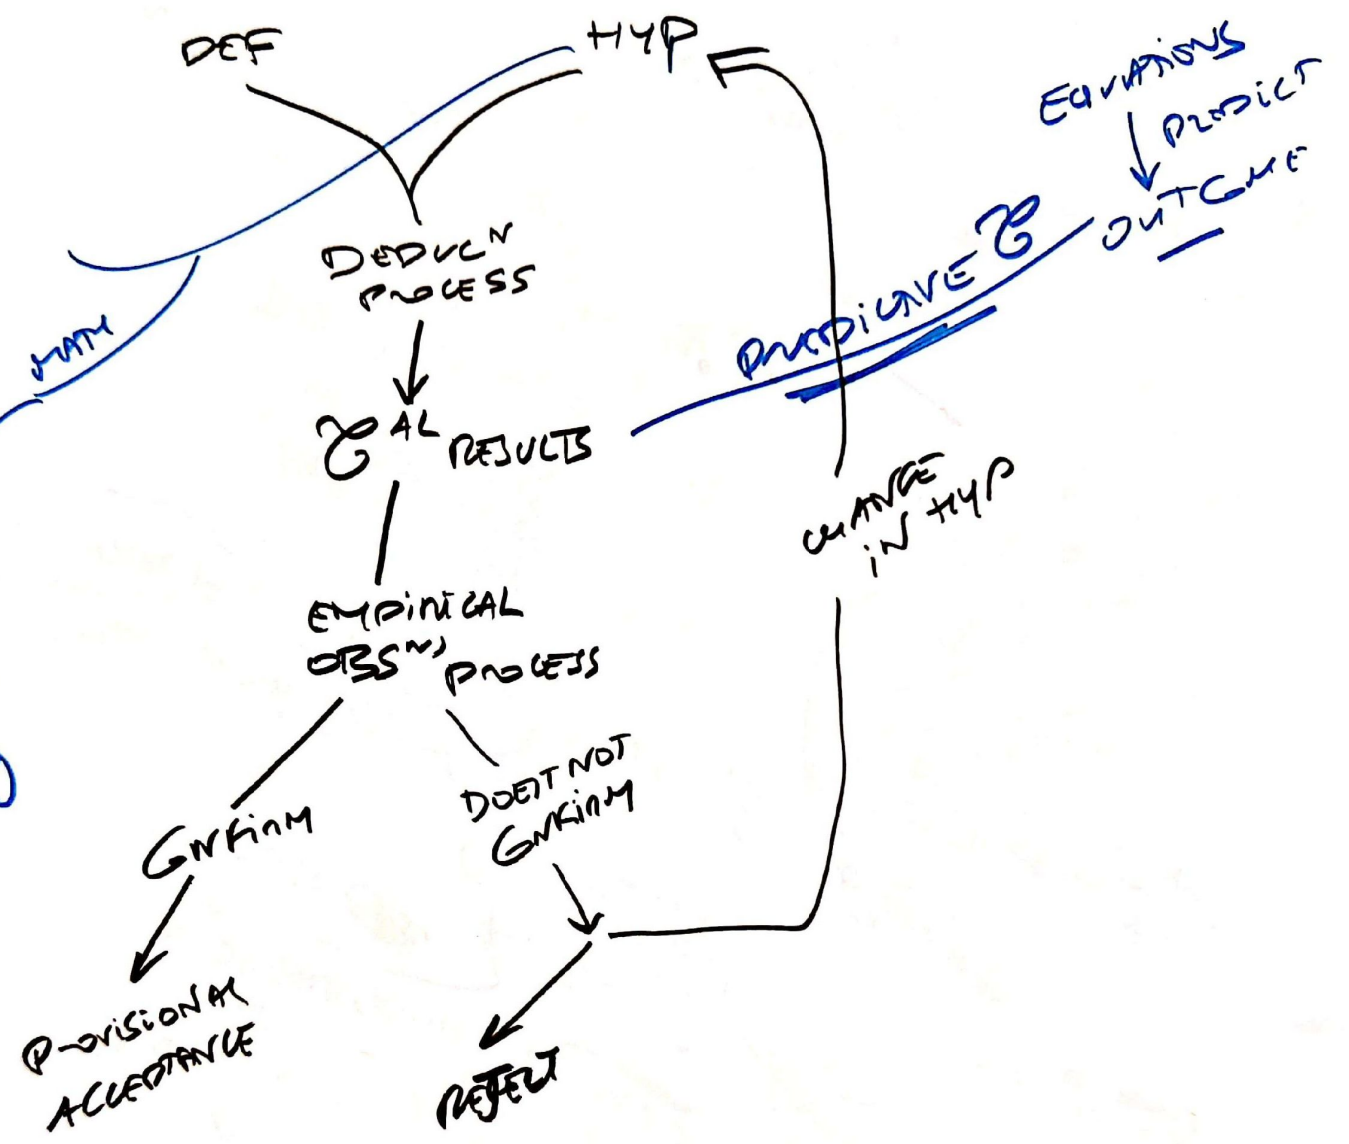 DEF
HYP
EQUATIONS
PREDICT
OUTCOME
DEDUCN
PROCESS
MATH
PREDICTIVE
AL RESULTS
CHANGE
IN HYP
EMPIRICAL
OBSNS PROCESS
DOES NOT
CONFIRM
CONFIRM
PROVISIONAL
ACCEPTANCE
REJECT